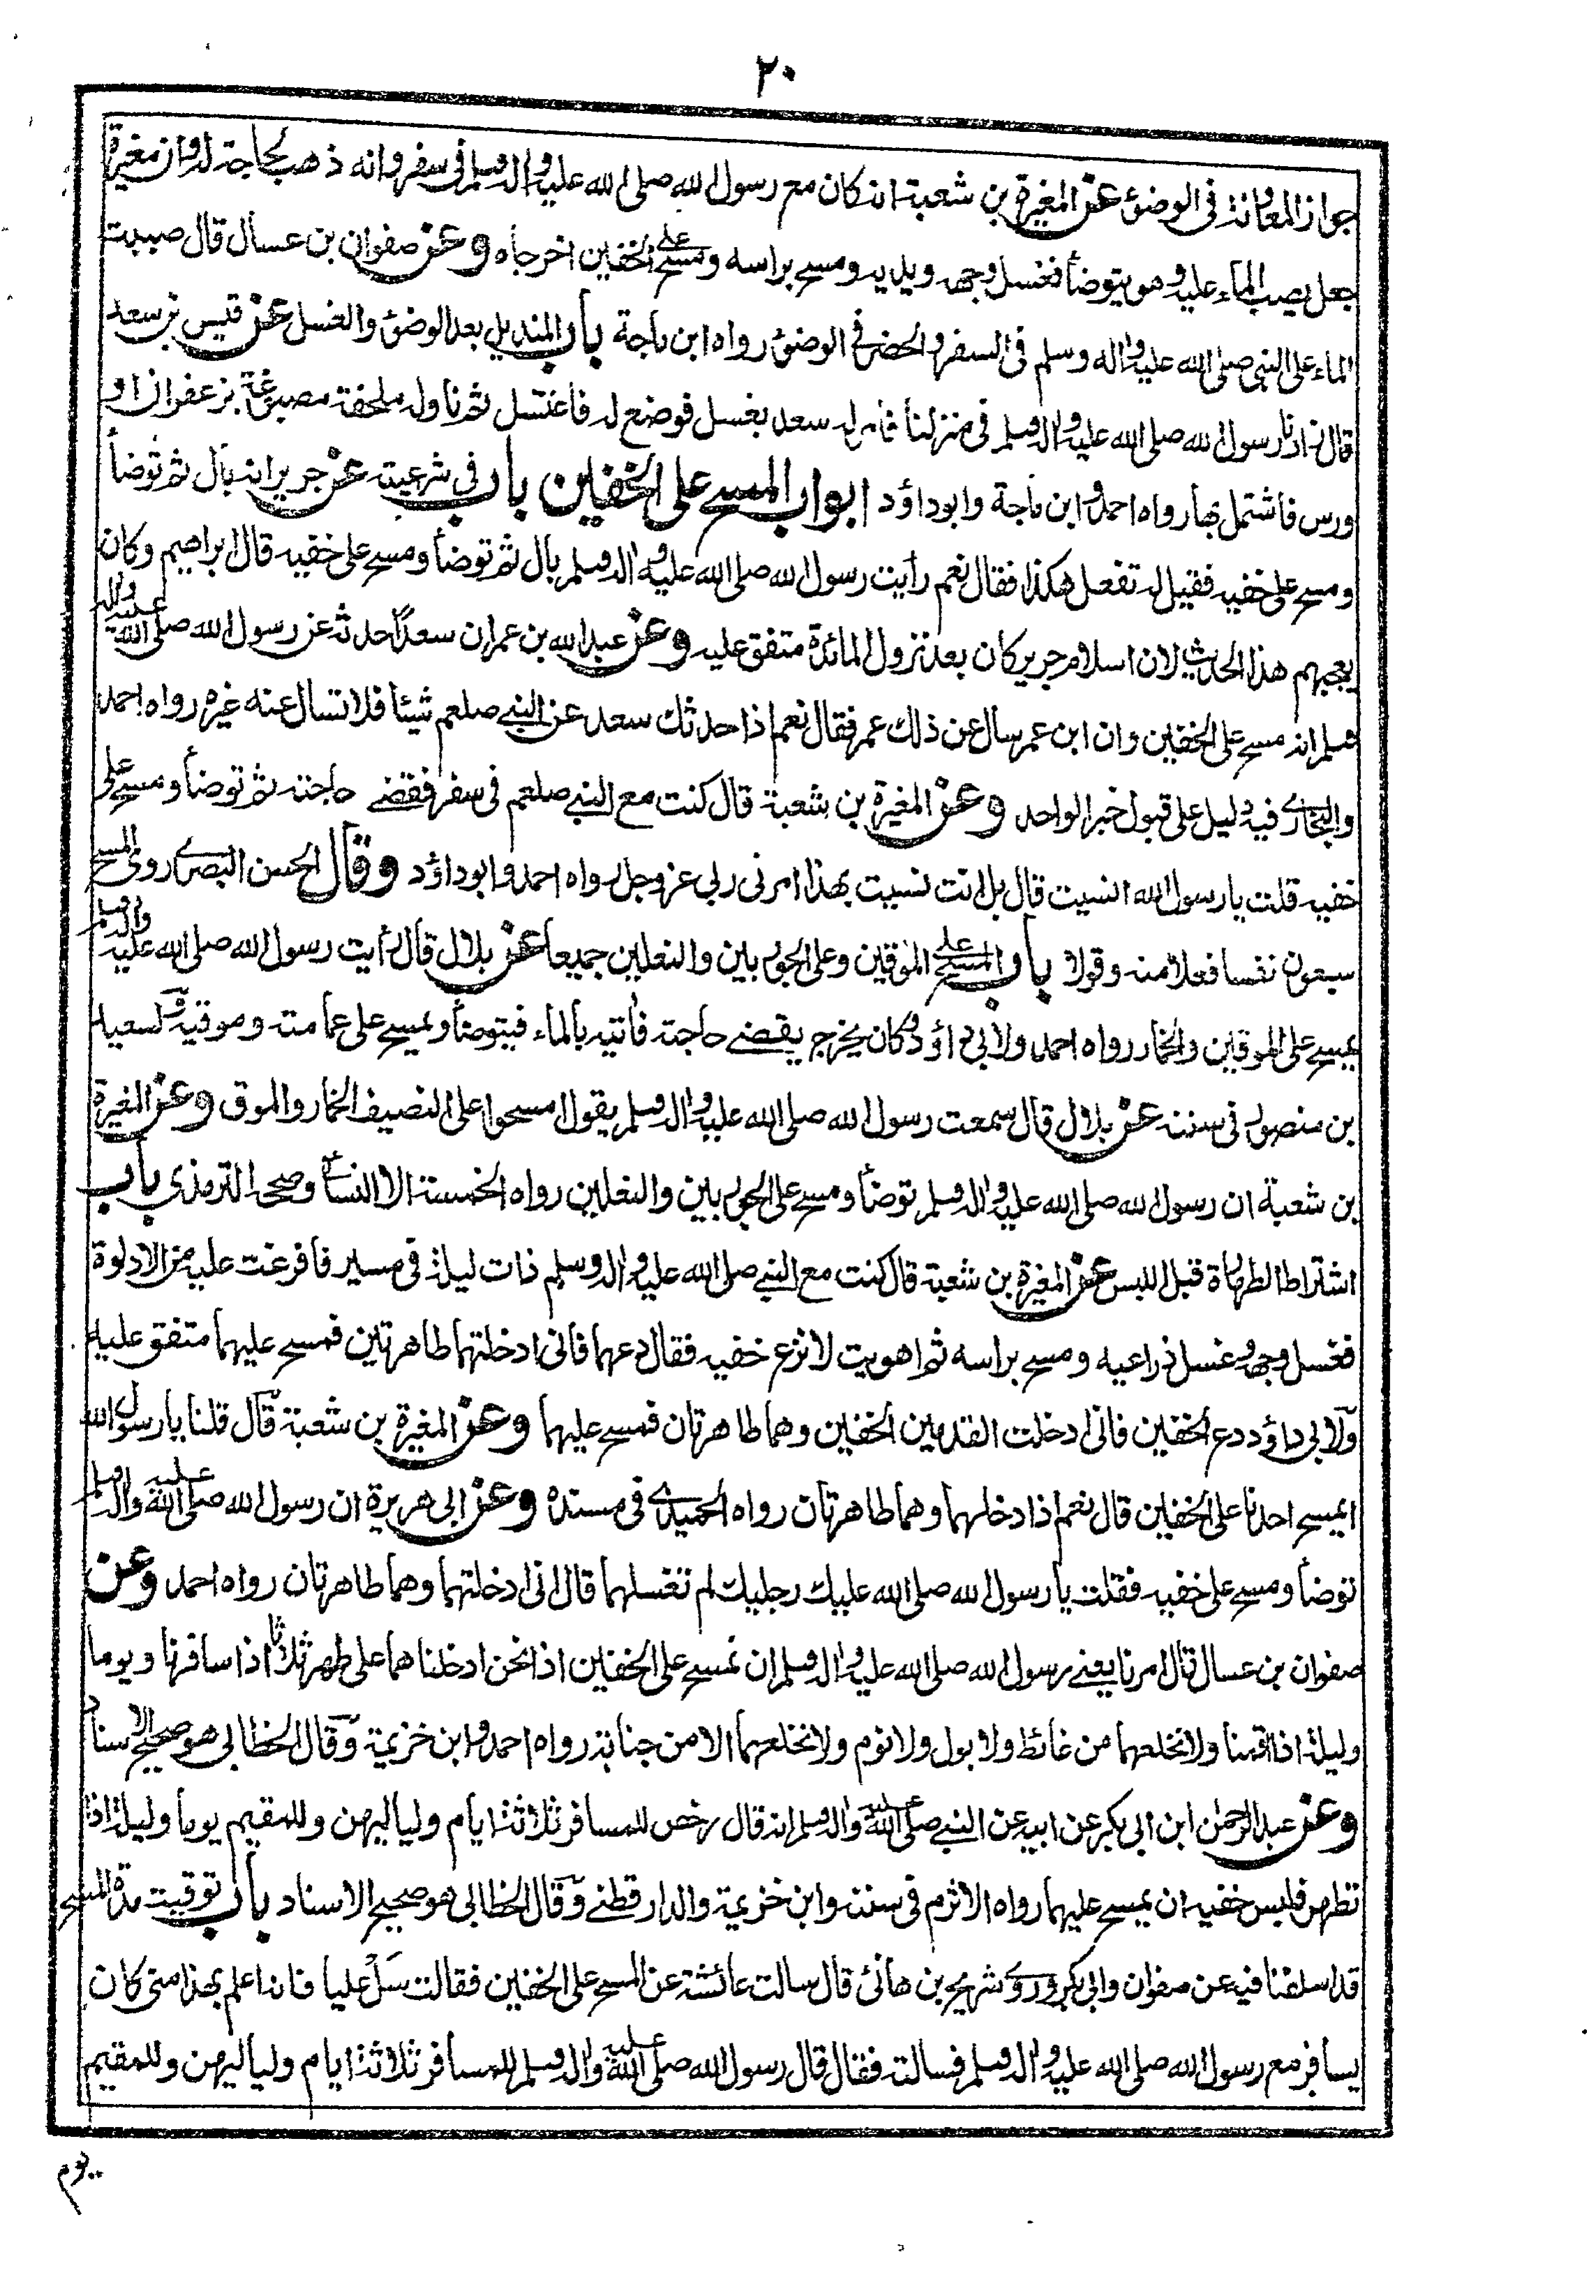 ٢٠
جواز المعاونة فى الوضوء عن المغيرة بن شعبة انه كان مع رسول الله صلى الله عليه واله وسلم فى سفر وانه ذهب لحاجة له وان مغيرة
جعل يصب الماء عليه وهو يتوضأ فغسل وجهه ويديه ومسح براسه ومسح على الخفين اخرجاه وعن صفوان بن عسال قال صببت
الماء على النبى صلى الله عليه واله وسلم فى السفر والحضر فى الوضوء رواه ابن ماجة باب المنديل بعد الوضوء والغسل عن قيس بن سعد
قال زارنا رسول الله صلى الله عليه واله وسلم فى منزلنا فامر له سعد بغسل فوضع له فاغتسل ثم ناوله ملحفة مصبوغة بزعفران او
ورس فاشتمل بها رواه احمد وابن ماجة وابوداؤد ابواب المسح على الخفين باب فى شرعيته عن جرير انه بال ثم توضأ
ومسح على خفيه فقيل له تفعل هكذا فقال نعم رأيت رسول الله صلى الله عليه واله وسلم بال ثم توضأ ومسح على خفيه قال ابراهيم وكان
يعجبهم هذا الحديث لان اسلام جرير كان بعد نزول المائدة متفق عليه وعن عبد الله بن عمر ان سعدًا حدثه عن رسول الله صلى الله عليه واله
وسلم انه مسح على الخفين وان ابن عمر سال عن ذلك عمر فقال نعم اذا حدثك سعد عن النبى صلعم شيئا فلا تسال عنه غيره رواه احمد
والبخارى فيه دليل على قبول خبر الواحد وعن المغيرة بن شعبة قال كنت مع النبى صلعم فى سفر فقضى حاجته ثم توضأ ومسح على
خفيه قلت يا رسول الله انسيت قال بل انت نسيت بهذا امرنى ربى عز وجل رواه احمد وابوداؤد وقال الحسن البصرى روى المسح
سبعون نفسا فعلا منه وقولا باب المسح على الموقين وعلى الجوربين والنعلين جميعا عن بلال قال رأيت رسول الله صلى الله عليه واله وسلم
يمسح على الموقين والخمار رواه احمد ولابى داؤد كان يخرج يقضى حاجته فآتيه بالماء فيتوضأ ويمسح على عمامته وموقيه ولسعيد
بن منصور فى سننه عن بلال قال سمعت رسول الله صلى الله عليه واله وسلم يقول امسحوا على النصيف الخمار والموق وعن المغيرة
بن شعبة ان رسول الله صلى الله عليه واله وسلم توضأ ومسح على الجوربين والنعلين رواه الخمسة الا النسائى وصححه الترمذى باب
اشتراط الطهارة قبل اللبس عن المغيرة بن شعبة قال كنت مع النبى صلى الله عليه واله وسلم ذات ليلة فى مسير فافرغت عليه من الادلوة
فغسل وجهه وغسل ذراعيه ومسح براسه ثم اهويت لانزع خفيه فقال دعهما فانى ادخلتهما طاهرتين فمسح عليهما متفق عليه
ولابى داؤد دع الخفين فانى ادخلت القدمين الخفين وهما طاهرتان فمسح عليهما وعن المغيرة بن شعبة قال قلنا يا رسول الله
ايمسح احدنا على الخفين قال نعم اذا دخلهما وهما طاهرتان رواه الحميدى فى مسنده وعن ابى هريرة ان رسول الله صلى الله عليه واله وسلم
توضأ ومسح على خفيه فقلت يا رسول الله صلى الله عليك رجليك لم تغسلهما قال انى ادخلتهما وهما طاهرتان رواه احمد وعن
صفوان بن عسال قال امرنا يعنى رسول الله صلى الله عليه واله وسلم ان نمسح على الخفين اذا نحن ادخلناهما على طهر ثلاثا اذا سافرنا ويوما
وليلة اذا اقمنا ولا نخلعهما من غائط ولا بول ولا نوم ولا نخلعهما الا من جنابة رواه احمد وابن خزيمة وقال الخطابى هو صحيح الاسناد
وعن عبد الرحمن ابن ابى بكر عن ابيه عن النبى صلى الله عليه واله وسلم انه قال رخص للمسافر ثلاثة ايام ولياليهن وللمقيم يوما وليلة اذا
تطهر فلبس خفيه ان يمسح عليهما رواه الاثرم فى سننه وابن خزيمة والدارقطنى وقال الخطابى هو صحيح الاسناد باب توقيت مدة المسح
قد اسلفنا فيه عن صفوان وابى بكر وروى شريح بن هانئ قال سالت عائشة عن المسح على الخفين فقالت سَلْ عليا فانه اعلم بهذا منى كان
يسافر مع رسول الله صلى الله عليه واله وسلم فسالته فقال قال رسول الله صلى الله عليه واله وسلم للمسافر ثلاثة ايام ولياليهن وللمقيم
يوم